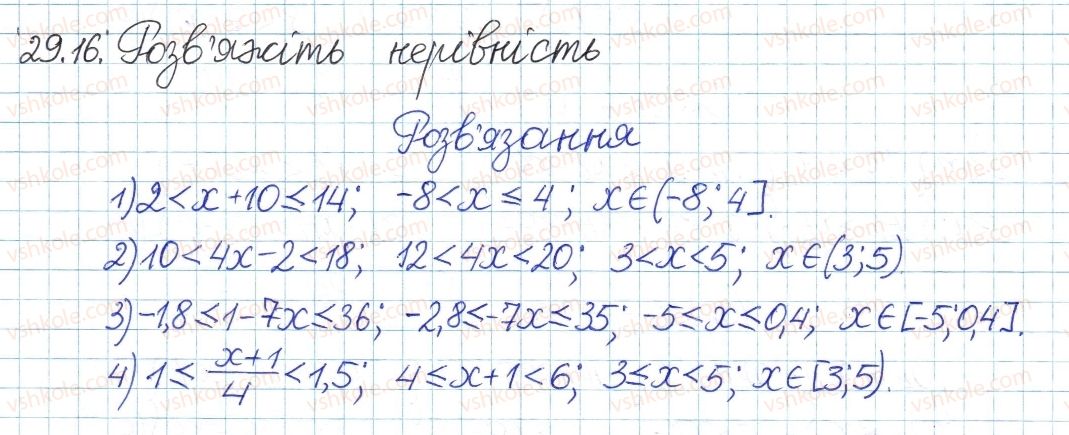 29.16. Розв'яжіть нерівність
Розв'язання
1) 2 < x + 10 ≤ 14; -8 < x ≤ 4; x ∈ (-8; 4].
2) 10 < 4x - 2 < 18; 12 < 4x < 20; 3 < x < 5; x ∈ (3; 5).
3) -1,8 ≤ 1 - 7x ≤ 36; -2,8 ≤ -7x ≤ 35; -5 ≤ x ≤ 0,4; x ∈ [-5; 0,4].
4) 1 ≤ (x+1)/4 < 1,5; 4 ≤ x + 1 < 6; 3 ≤ x < 5; x ∈ [3; 5).
vshkole.com